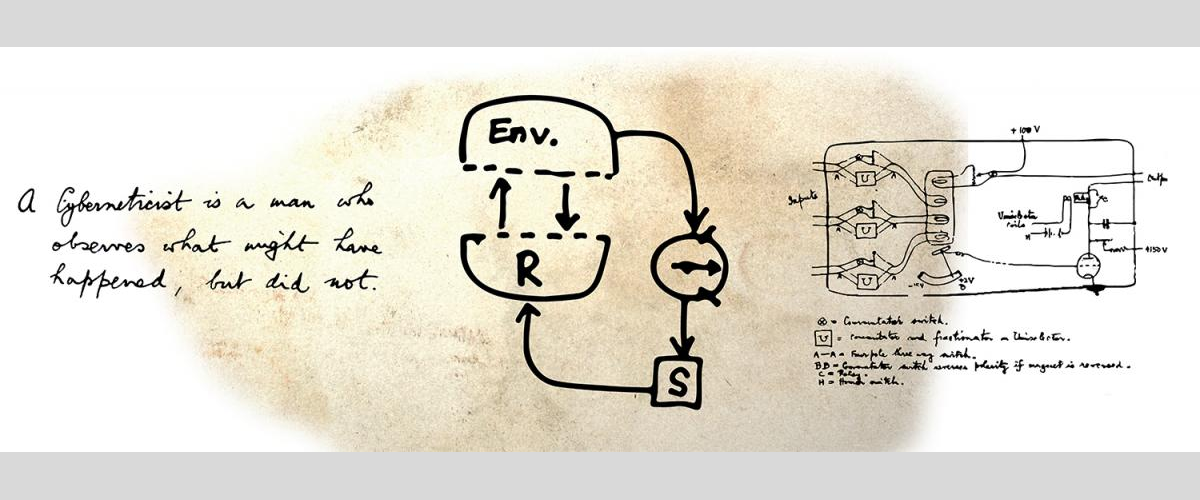 A Cyberneticist is a man who
observes what might have
happened, but did not.
Env.
R
S
+100 V
Inputs
Output
Uniselector
coils
+150 V
H
A
A
U
A
A
U
A
A
U
= Commutator switch.
U = commutator and fractionator on Uniselector.
A–A = Four pole three way switch.
BB = Commutator switch reverses polarity if magnet is reversed.
C = Relay.
H = switch.